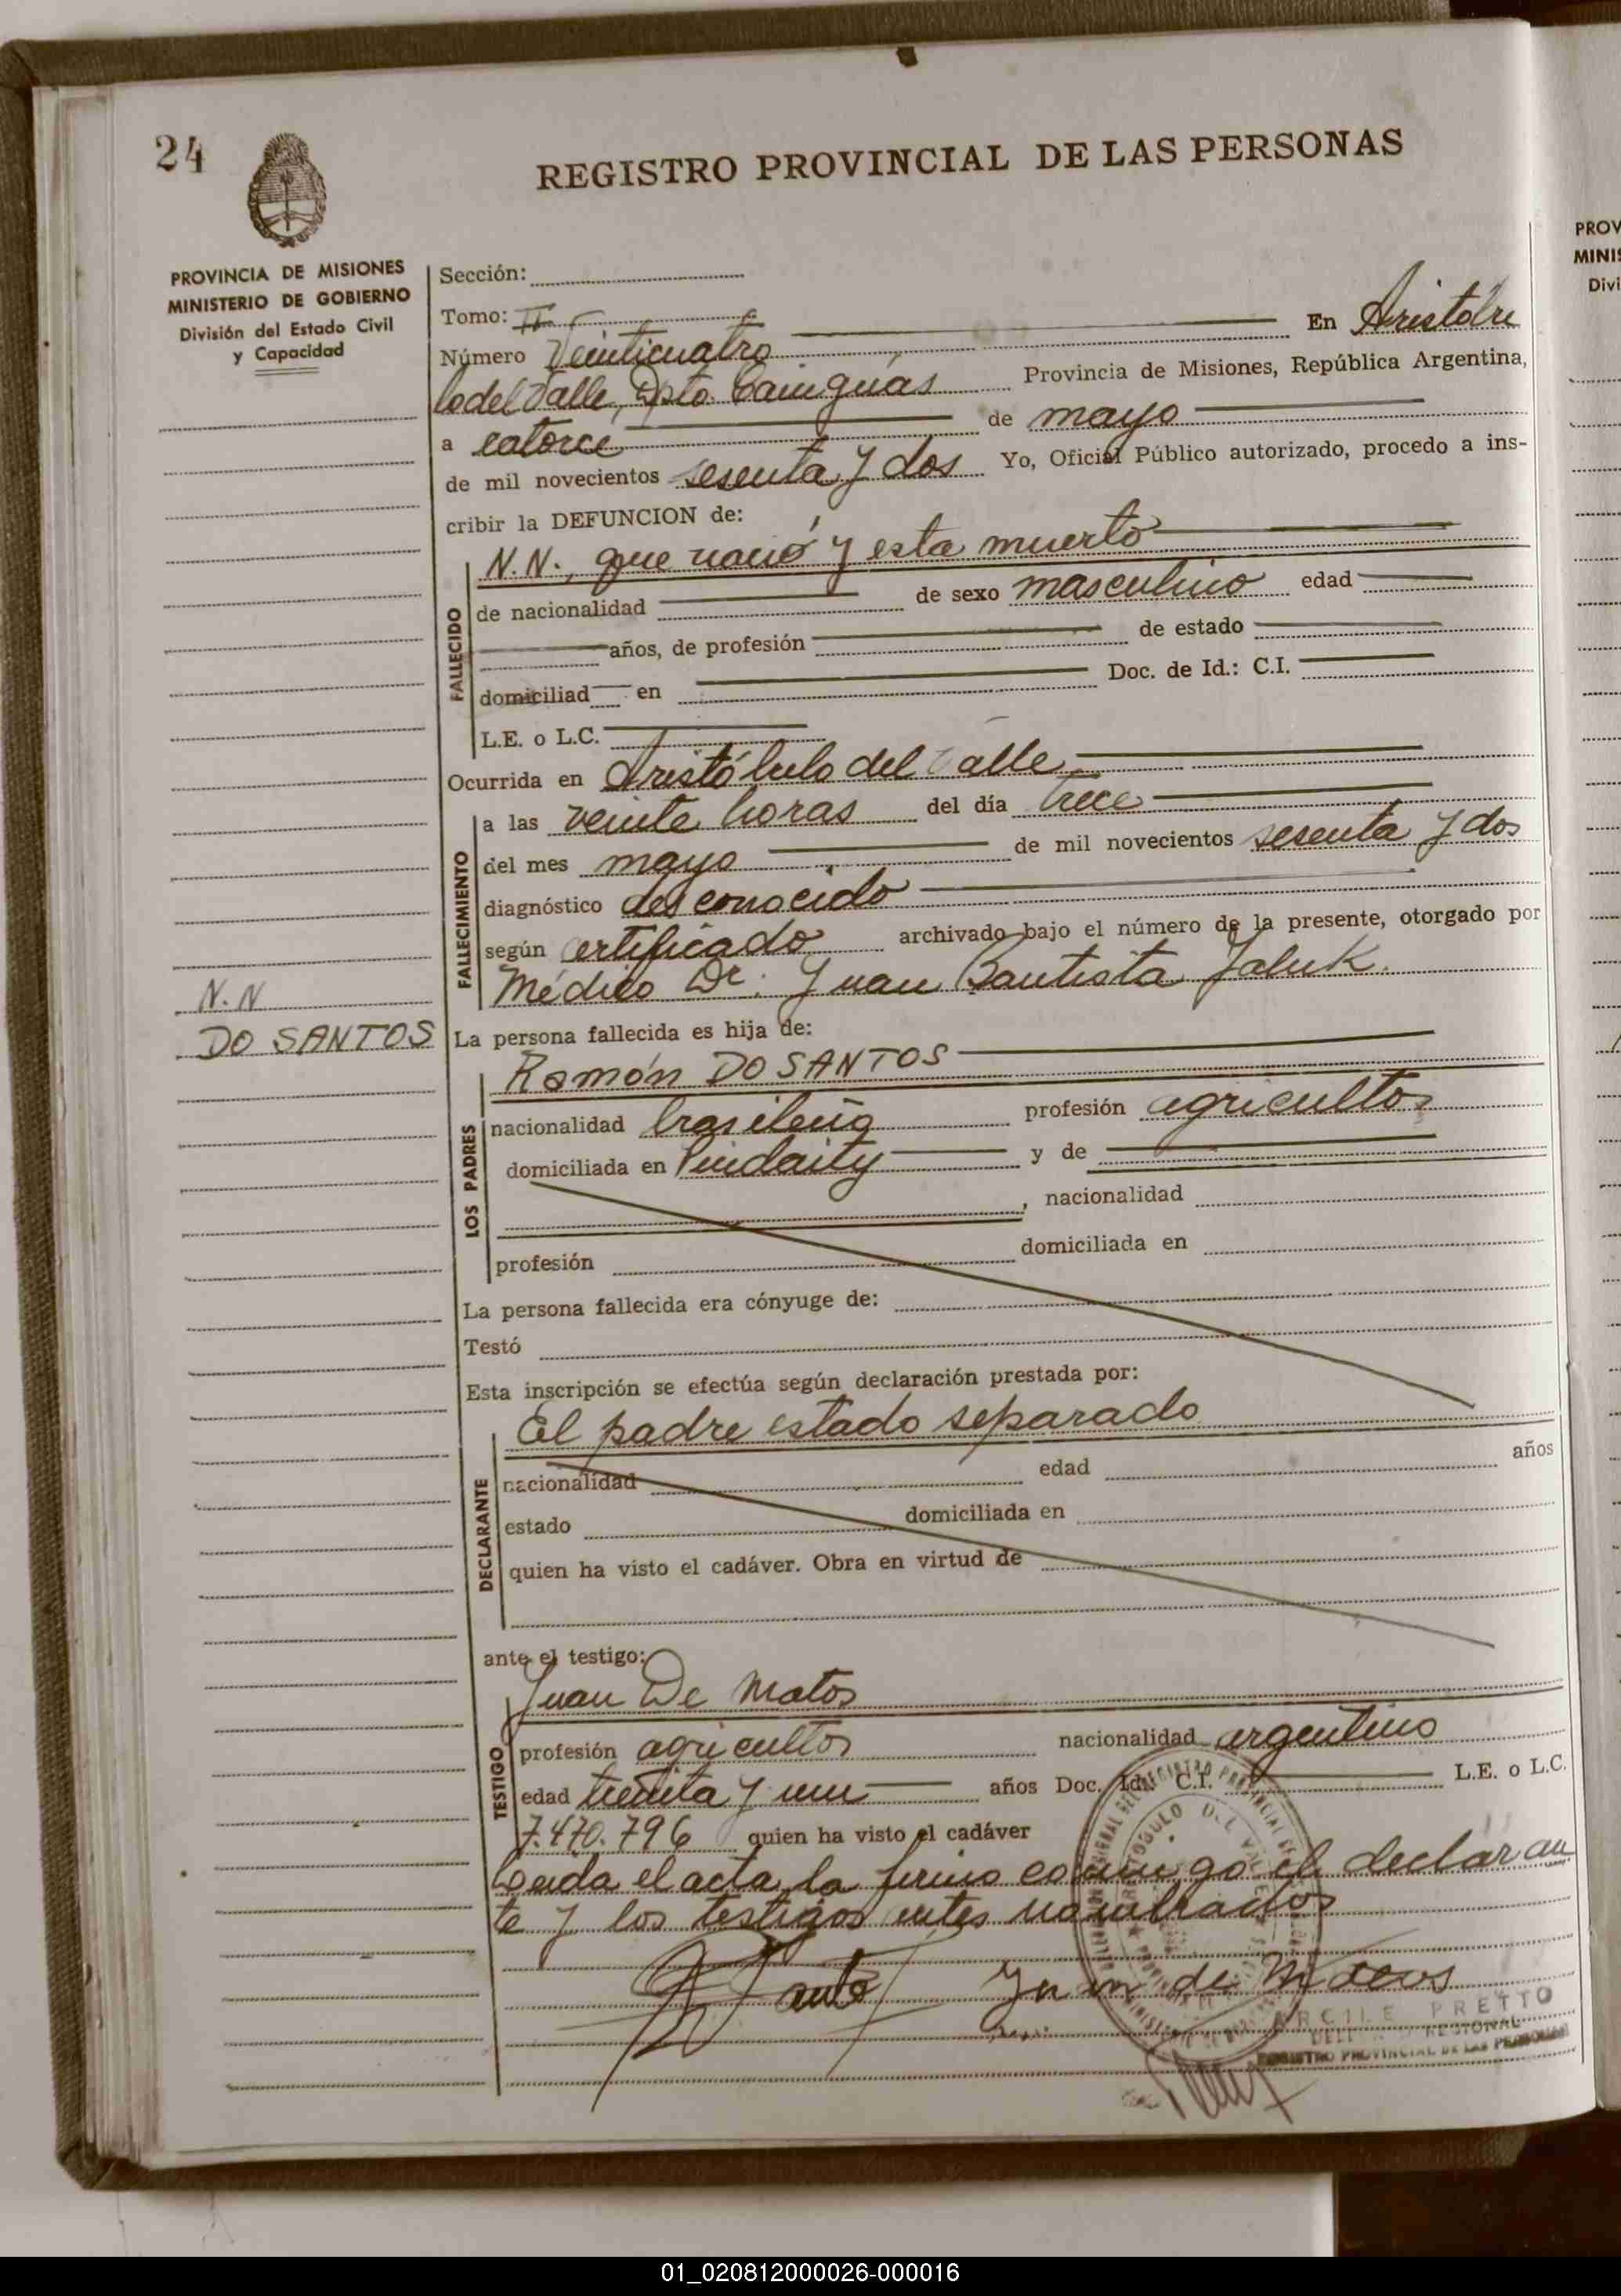 24
REGISTRO PROVINCIAL DE LAS PERSONAS
PROVINCIA DE MISIONES
MINISTERIO DE GOBIERNO
División del Estado Civil
y Capacidad
Sección:
Tomo: II
Número Veinticuatro En Aristóbu
lo del Valle, Dpto. Cainguás Provincia de Misiones, República Argentina,
a catorce de mayo
de mil novecientos sesenta y dos Yo, Oficial Público autorizado, procedo a ins-
cribir la DEFUNCION de:
N.N., que nació y esta muerto
FALLECIDO
de nacionalidad de sexo masculino edad
años, de profesión de estado
domiciliad en Doc. de Id.: C.I.
L.E. o L.C.
Ocurrida en Aristóbulo del Valle
FALLECIMIENTO
a las veinte horas del día trece
del mes mayo de mil novecientos sesenta y dos
diagnóstico desconocido
según certificado archivado bajo el número de la presente, otorgado por
Médico Dr. Juan Bautista Jaluk.
N.N
DO SANTOS
La persona fallecida es hija de:
LOS PADRES
Ramón DO SANTOS
nacionalidad brasileña profesión agricultor
domiciliada en Pindaity y de
, nacionalidad
profesión domiciliada en
La persona fallecida era cónyuge de:
Testó
Esta inscripción se efectúa según declaración prestada por:
El padre estado separado
DECLARANTE
nacionalidad edad años
estado domiciliada en
quien ha visto el cadáver. Obra en virtud de
ante el testigo:
Juan De Matos
TESTIGO
profesión agricultor nacionalidad argentino
edad treinta y un años Doc. Id. C.I. L.E. o L.C.
7.470.796 quien ha visto el cadáver
Leida el acta la firma conmigo el declaran
te y los testigos antes nombrados
Juan de Mateus
ARCILE PRETTO
REGIONAL
REGISTRO PROVINCIAL DE LAS PERSONAS
PROV
MINIS
Divi
01_020812000026-000016